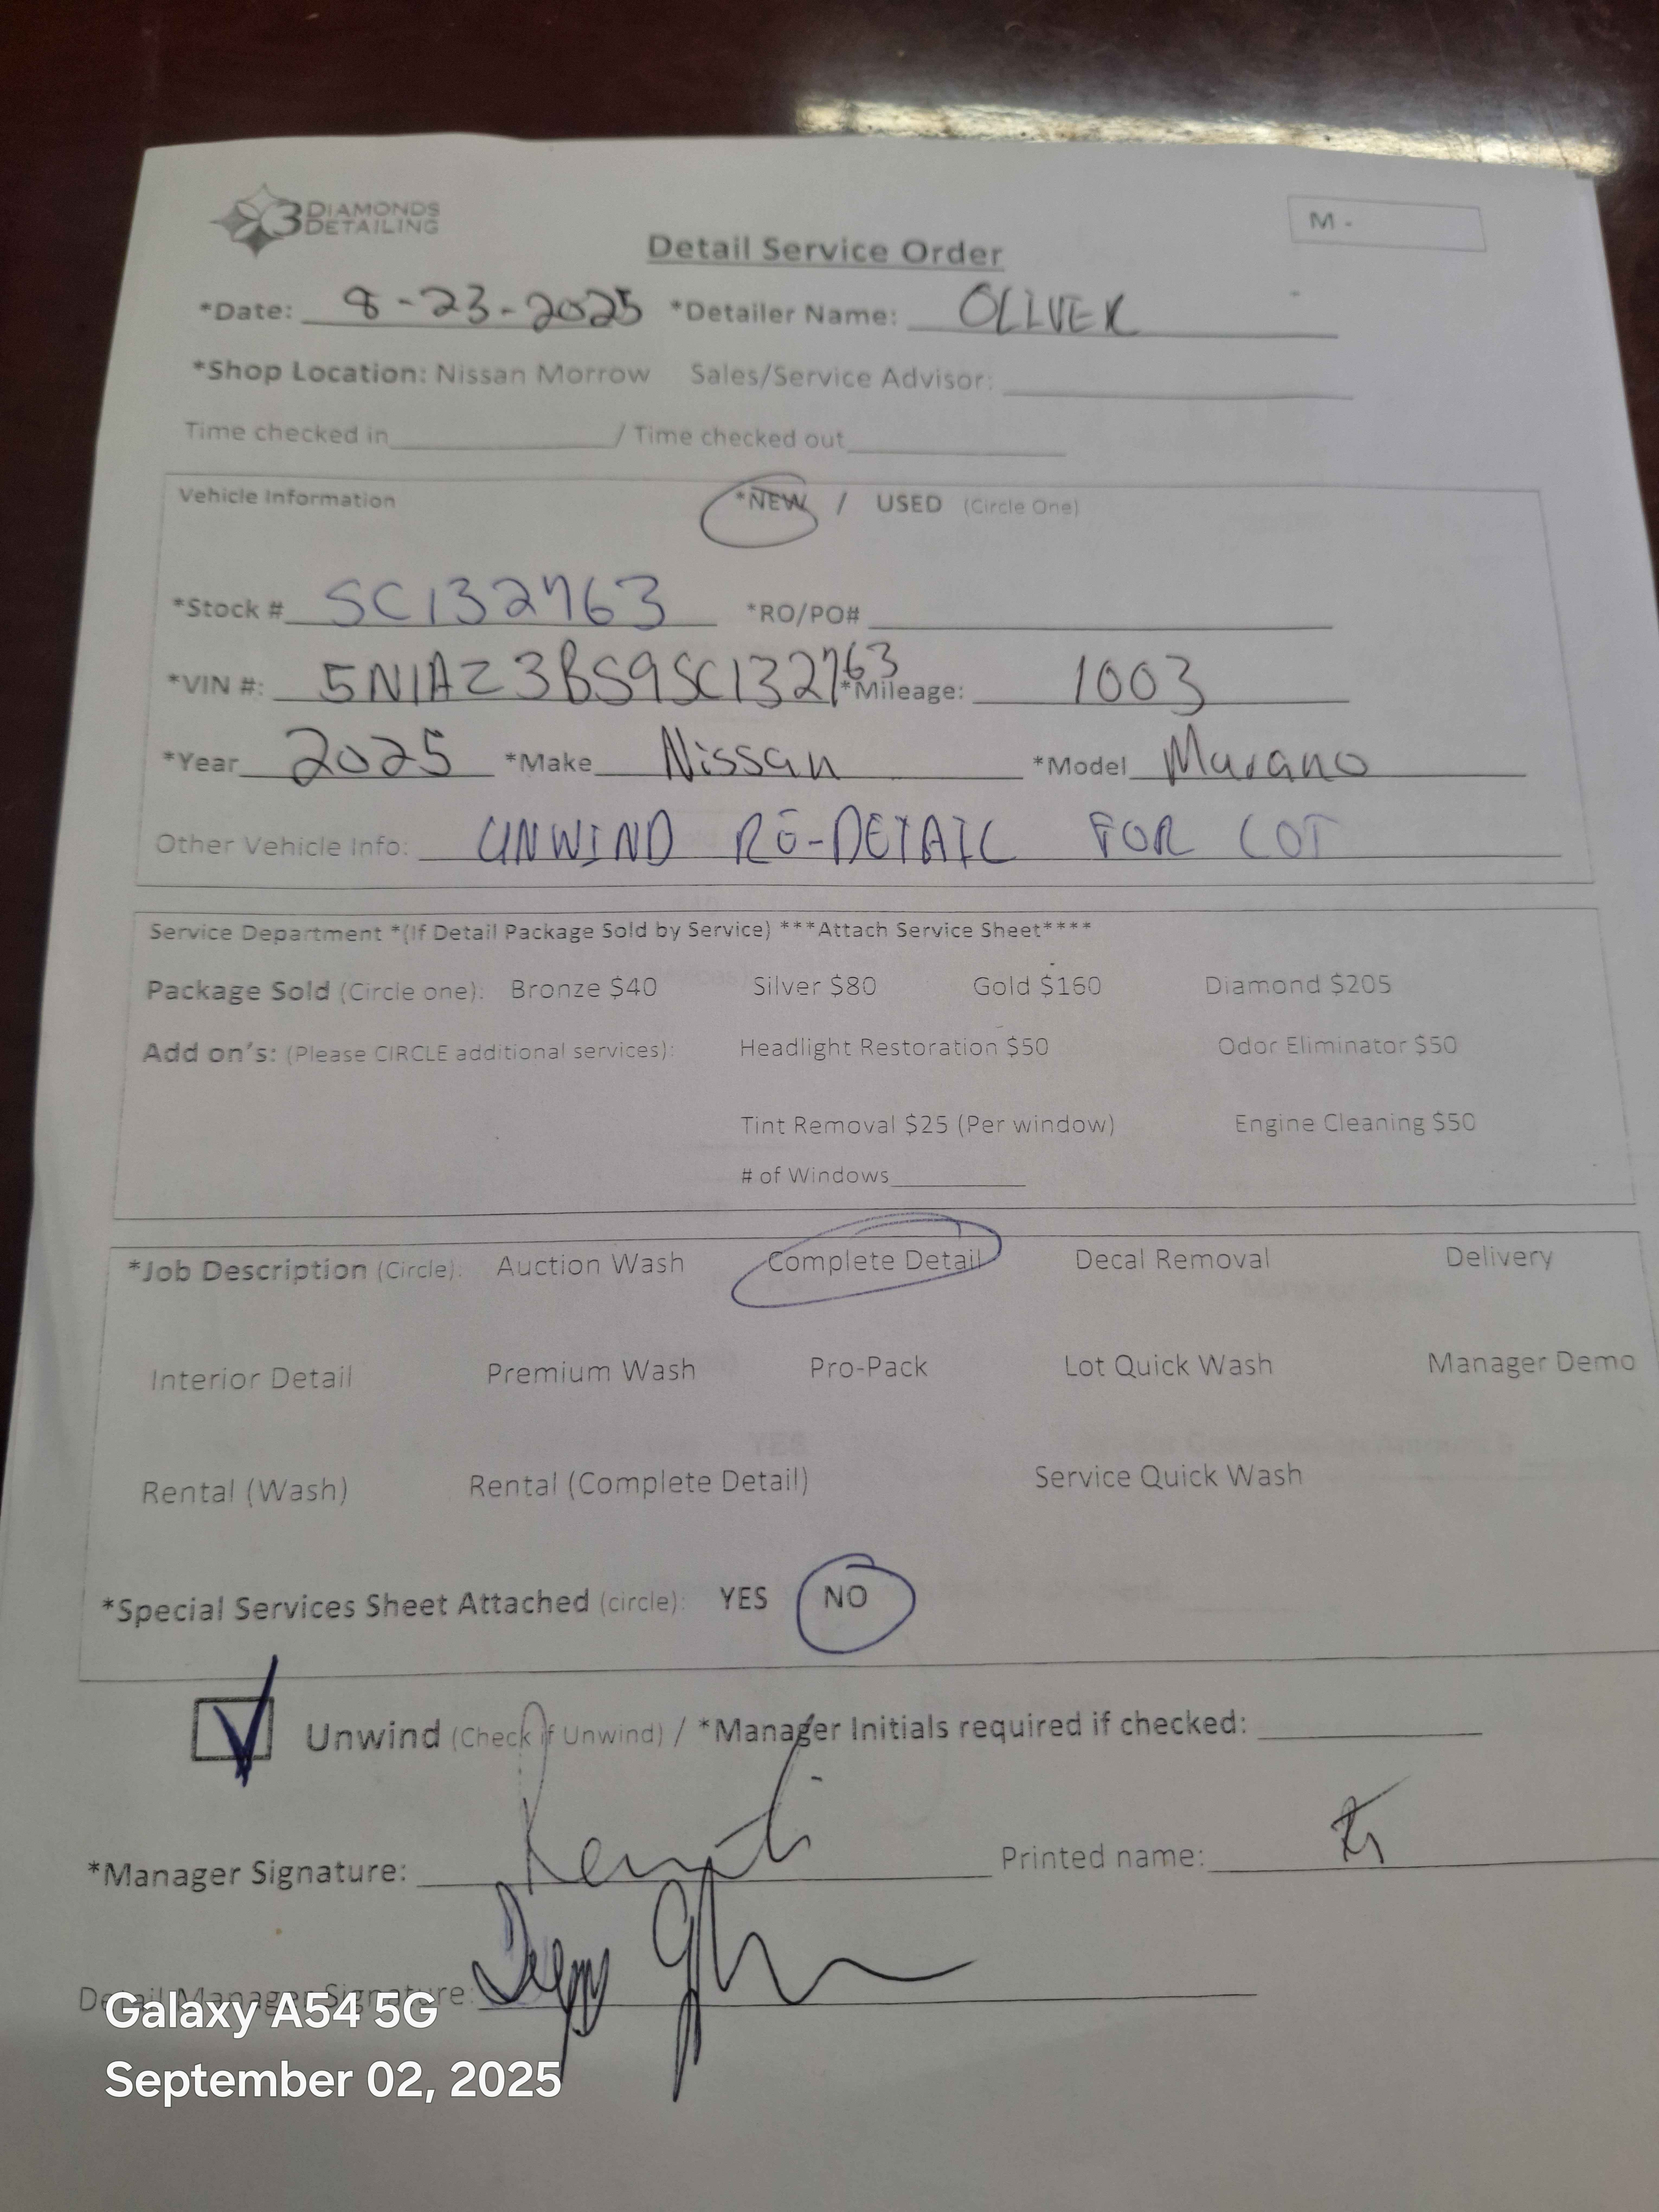 3 DIAMONDS DETAILING
M -
Detail Service Order
*Date: 8-23-2025 *Detailer Name: OLIVER
*Shop Location: Nissan Morrow Sales/Service Advisor:
Time checked in / Time checked out
Vehicle Information *NEW / USED (Circle One)
*Stock # SC132763 *RO/PO#
*VIN #: 5N1AZ3BS9SC132763 *Mileage: 1003
*Year 2025 *Make Nissan *Model Murano
Other Vehicle Info: UNWIND RE-DETAIL FOR LOT
Service Department *(If Detail Package Sold by Service) ***Attach Service Sheet****
Package Sold (Circle one): Bronze $40 Silver $80 Gold $160 Diamond $205
Add on's: (Please CIRCLE additional services): Headlight Restoration $50 Odor Eliminator $50
Tint Removal $25 (Per window) Engine Cleaning $50
# of Windows
*Job Description (Circle): Auction Wash Complete Detail Decal Removal Delivery
Interior Detail Premium Wash Pro-Pack Lot Quick Wash Manager Demo
Rental (Wash) Rental (Complete Detail) Service Quick Wash
*Special Services Sheet Attached (circle): YES NO
Unwind (Check if Unwind) / *Manager Initials required if checked:
*Manager Signature: Printed name:
Detail Manager Signature:
Galaxy A54 5G
September 02, 2025